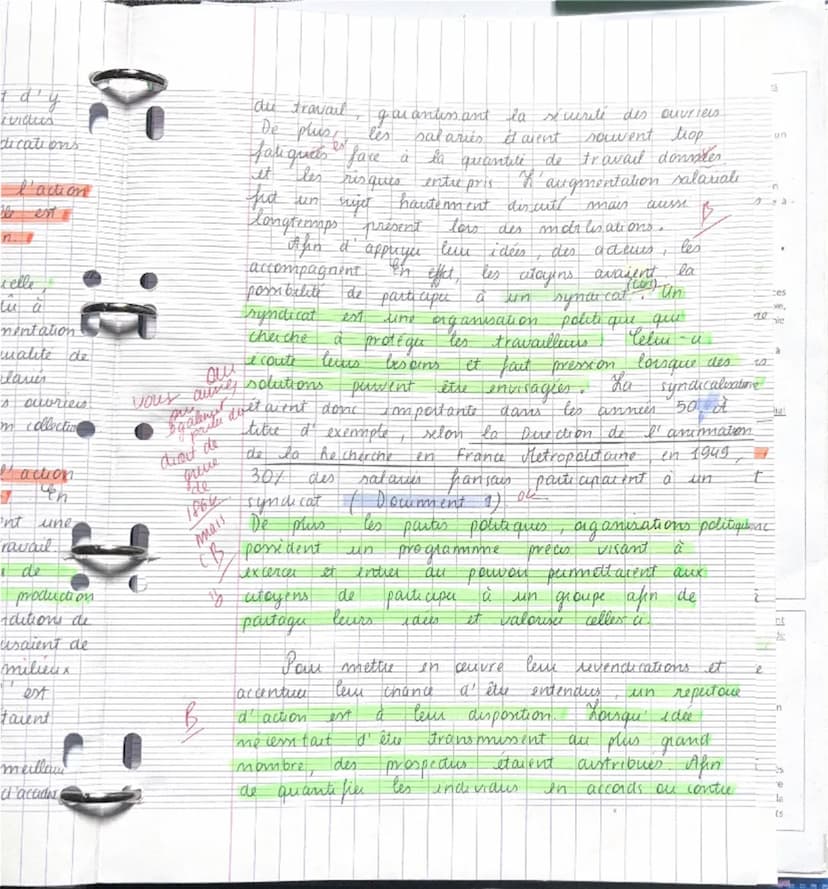 t d'y
ividus
dications
l'action
n.
du travail, garantissant la sécurité des ouvriers
De plus, les salariés étaient souvent trop
fatigués face à la quantité de travail données
et les risques entrepris L'augmentation salariale
fut un sujet hautement discuté mais aussi
longtemps présent lors des mobilisations.
B
Afin d'appuyer leur idées, des acteurs, les
accompagnent. En effet, les citoyens avaient la
possibilité de participer à un syndicat. Un
syndicat est une organisation politique qui
cherche à protéger les travailleurs. Celui-ci
écoute leurs besoins et fait pression lorsque des
solutions peuvent être envisagées. La syndicalisation
étaient donc importante dans les années 50. A
titre d'exemple, selon la Direction de l'animation
de la Recherche en France Métropolitaine en 1949,
30% des salariés français participaient à un
syndicat (Document 1) ok
De plus, les partis politiques, organisations politique
possédent un programme précis visant à
excercer et entrer au pouvoir permettaient aux
citoyens de participer à un groupe afin de
partager leurs idées et valorise celles ci.
Pour mettre en œuvre leur revendications et
accentuer leur chance d'être entendus, un repertoire
d'action est à leur disposition. Lorsqu'idée
nécessitait d'être transmissent au plus grand
nombre, des prospectus étaient distribués. Afin
de quantifier les individus en accords ou contre
oui
vous auriez
pu
également
parler du
droit de
grève
de
1864
mais
B
mentation
s ouvriers
l'action
En
nt une
ravail.
de
production
nditions de
usaient de
milieux
'est
taient